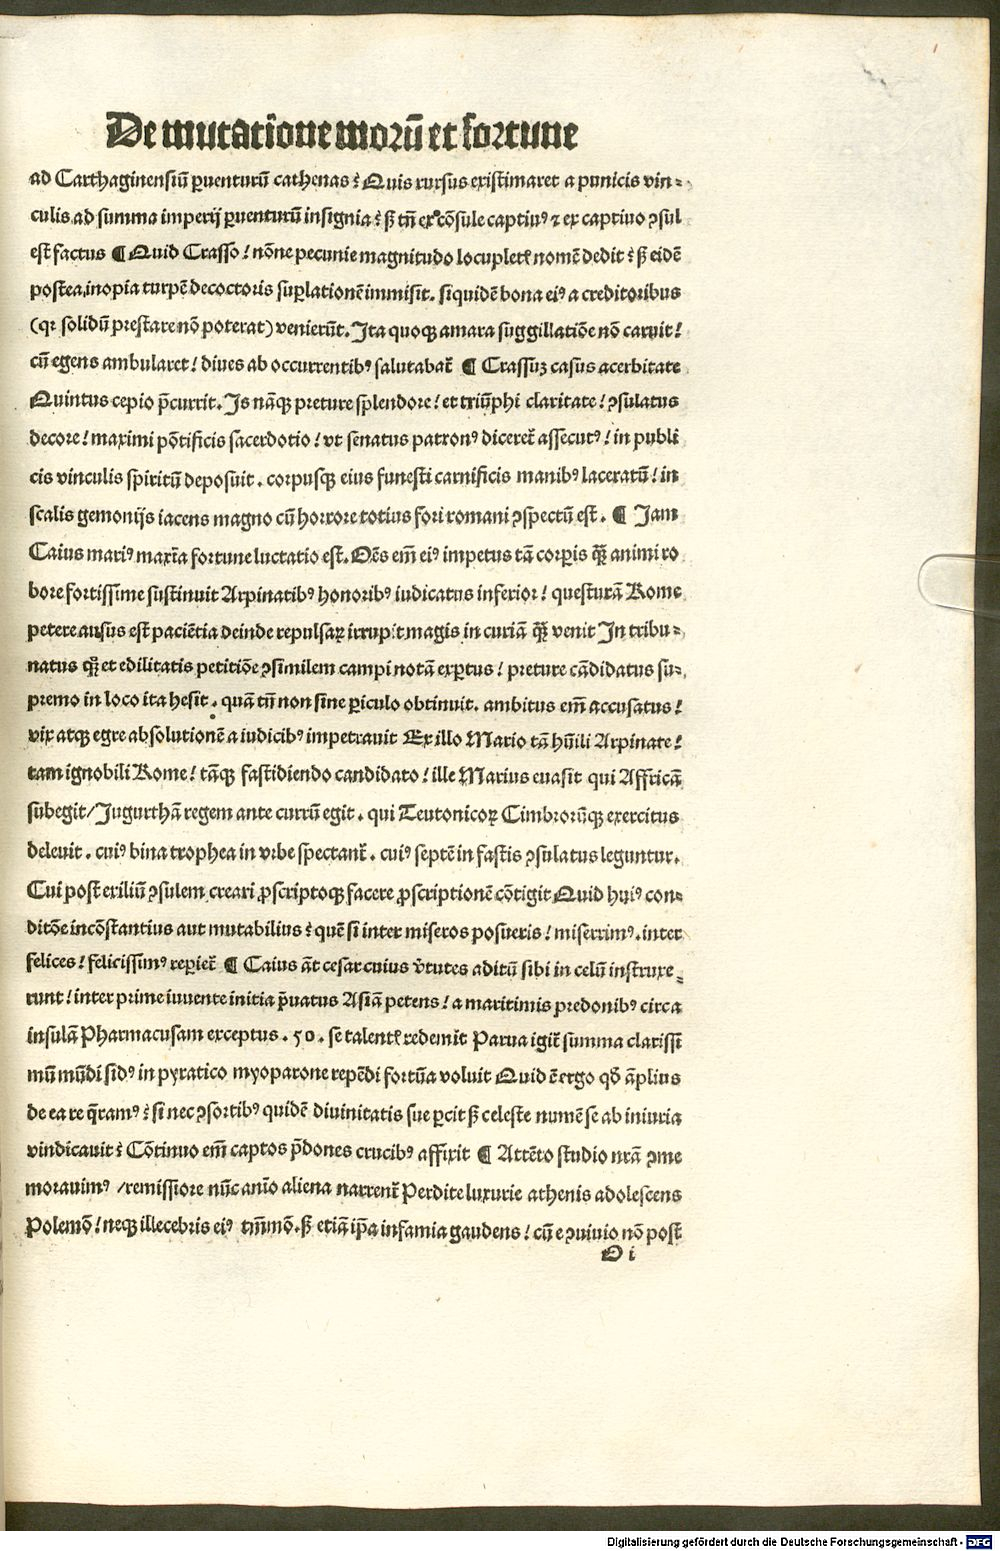 De mutatione morū et fortune
ad Carthaginensiū ꝑuenturū cathenas? Quis rursus existimaret a punicis vin⸗
culis ad summa imperij ꝑuenturū insignia? sꝫ tñ ex cōsule captiuꝰ ⁊ ex captiuo ꝯsul
est factus ¶ Quid Crasso / nōne pecunie magnitudo locupletꝭ nomē dedit? sꝫ eidē
postea, inopia turpē decoctoris suꝑlationē immisit. siquidē bona eiꝰ a creditoribus
(qꝛ solidū prestare nō poterat) venierūt. Ita quoqꝫ amara suggillatiōe nō caruit /
cū egens ambularet / diues ab occurrentibꝰ salutabat᷑ ¶ Crassuꝫ casus acerbitate
Quintus cepio p̄currit. Is nāqꝫ preture splendore / et triūphi claritate / ꝯsulatus
decore / maximi pōtificis sacerdotio / vt senatus patronꝰ diceret᷑ assecutꝰ / in publi
cis vinculis spiritū deposuit. corpusqꝫ eius funesti carnificis manibꝰ laceratū / in
scalis gemonijs iacens magno cū horrore totius fori romani ꝯspectū est. ¶ Jam
Caius mariꝰ maxīa fortune luctatio est. Oēs em̄ eiꝰ impetus tā corꝑis qꝫ̄ animi ro
bore fortissime sustinuit Arpinatibꝰ honoribꝰ iudicatus inferior / questurā Rome
petere ausus est paciētia deinde repulsaꝝ irrupit magis in curiā qꝫ̄ venit In tribu⸗
natus qꝫ et edilitatis petitiōe ꝯsimilem campi notā exꝑtus / preture cādidatus su⸗
premo in loco ita hesit. quā tñ non sine ꝑiculo obtinuit. ambitus em̄ accusatus /
vix atqꝫ egre absolutionē a iudicibꝰ impetrauit Ex illo Mario tā hūili Arpinate /
tam ignobili Rome / tāqꝫ fastidiendo candidato / ille Marius euasit qui Affricā
subegit / Jugurthā regem ante currū egit. qui Teutonicoꝝ Cimbrorūqꝫ exercitus
deleuit. cuiꝰ bina trophea in vrbe spectant᷑. cuiꝰ septē in fastis ꝯsulatus leguntur.
Cui post exiliū ꝯsulem creari ꝓscriptoqꝫ facere ꝓscriptionē cōtigit Quid huiꝰ con⸗
ditōe incōstantius aut mutabilius? quē si inter miseros posueris / miserrimꝰ. inter
felices / felicissimꝰ reꝑiet᷑ ¶ Caius āt cesar cuius v̄tutes aditū sibi in celū instruxe⸗
runt / inter prime iuuente initia p̄uatus Asiā petens / a maritimis predonibꝰ circa
insulā Pharmacusam exceptus. 50. se talentꝭ redemit Parua igit᷑ summa clarissi
mū mūdi sidꝰ in pyratico myoparone repēdi fortūa voluit Quid ē ergo qd̄ āplius
de ea re q̄ramꝰ? si nec ꝯsortibꝰ quidē diuinitatis sue ꝑcit sꝫ celeste numē se ab iniuria
vindicauit? Cōtinuo em̄ captos p̄dones crucibꝰ affixit ¶ Attēto studio nr̄a ꝯme
morauimꝰ / remissiore nūc anīo aliena narrent᷑ Perdite luxurie athenis adolescens
Polemō / neqꝫ illecebris eiꝰ tm̄mō. sꝫ etiā ip̄a infamia gaudens / cū e ꝯuiuio nō post
O i
Digitalisierung gefördert durch die Deutsche Forschungsgemeinschaft - DFG